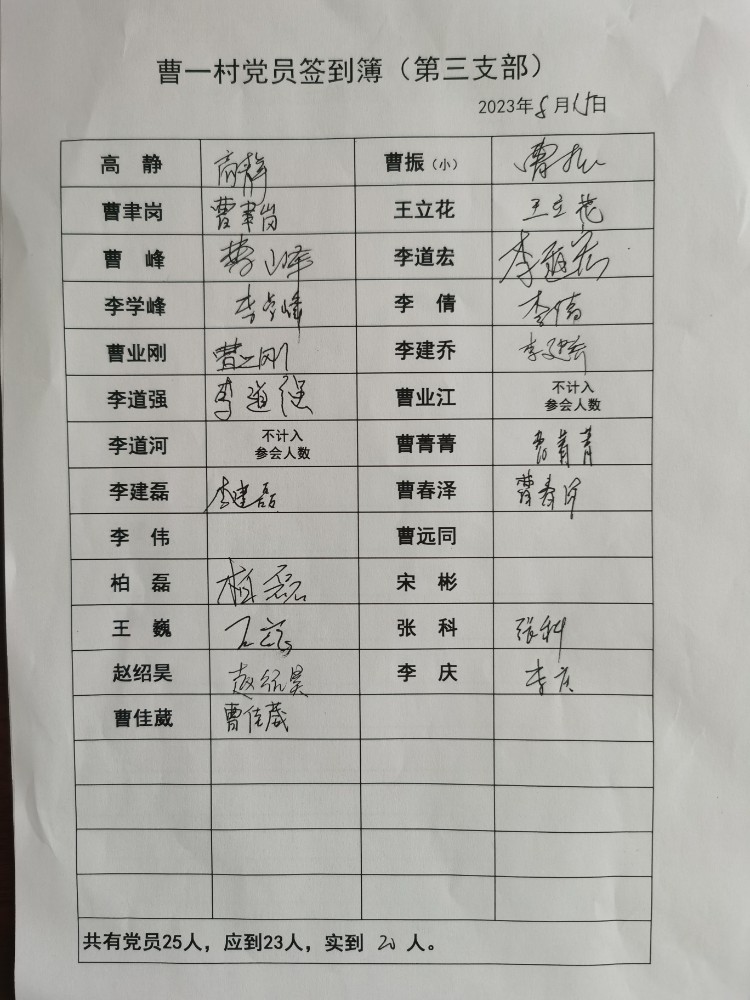 曹一村党员签到簿（第三支部）
2023年8月15日
高 静 高静 曹振（小） 曹振
曹聿岗 曹聿岗 王立花 王立花
曹 峰 曹峰 李道宏 李道宏
李学峰 李学峰 李 倩 李倩
曹业刚 曹业刚 李建乔 李建乔
李道强 李道强 曹业江 不计入
参会人数
李道河 不计入
参会人数 曹菁菁 曹菁菁
李建磊 李建磊 曹春泽 曹春泽
李 伟 曹远同
柏 磊 柏磊 宋 彬
王 巍 王巍 张 科 张科
赵绍昊 赵绍昊 李 庆 李庆
曹佳葳 曹佳葳
共有党员25人，应到23人，实到 20 人。